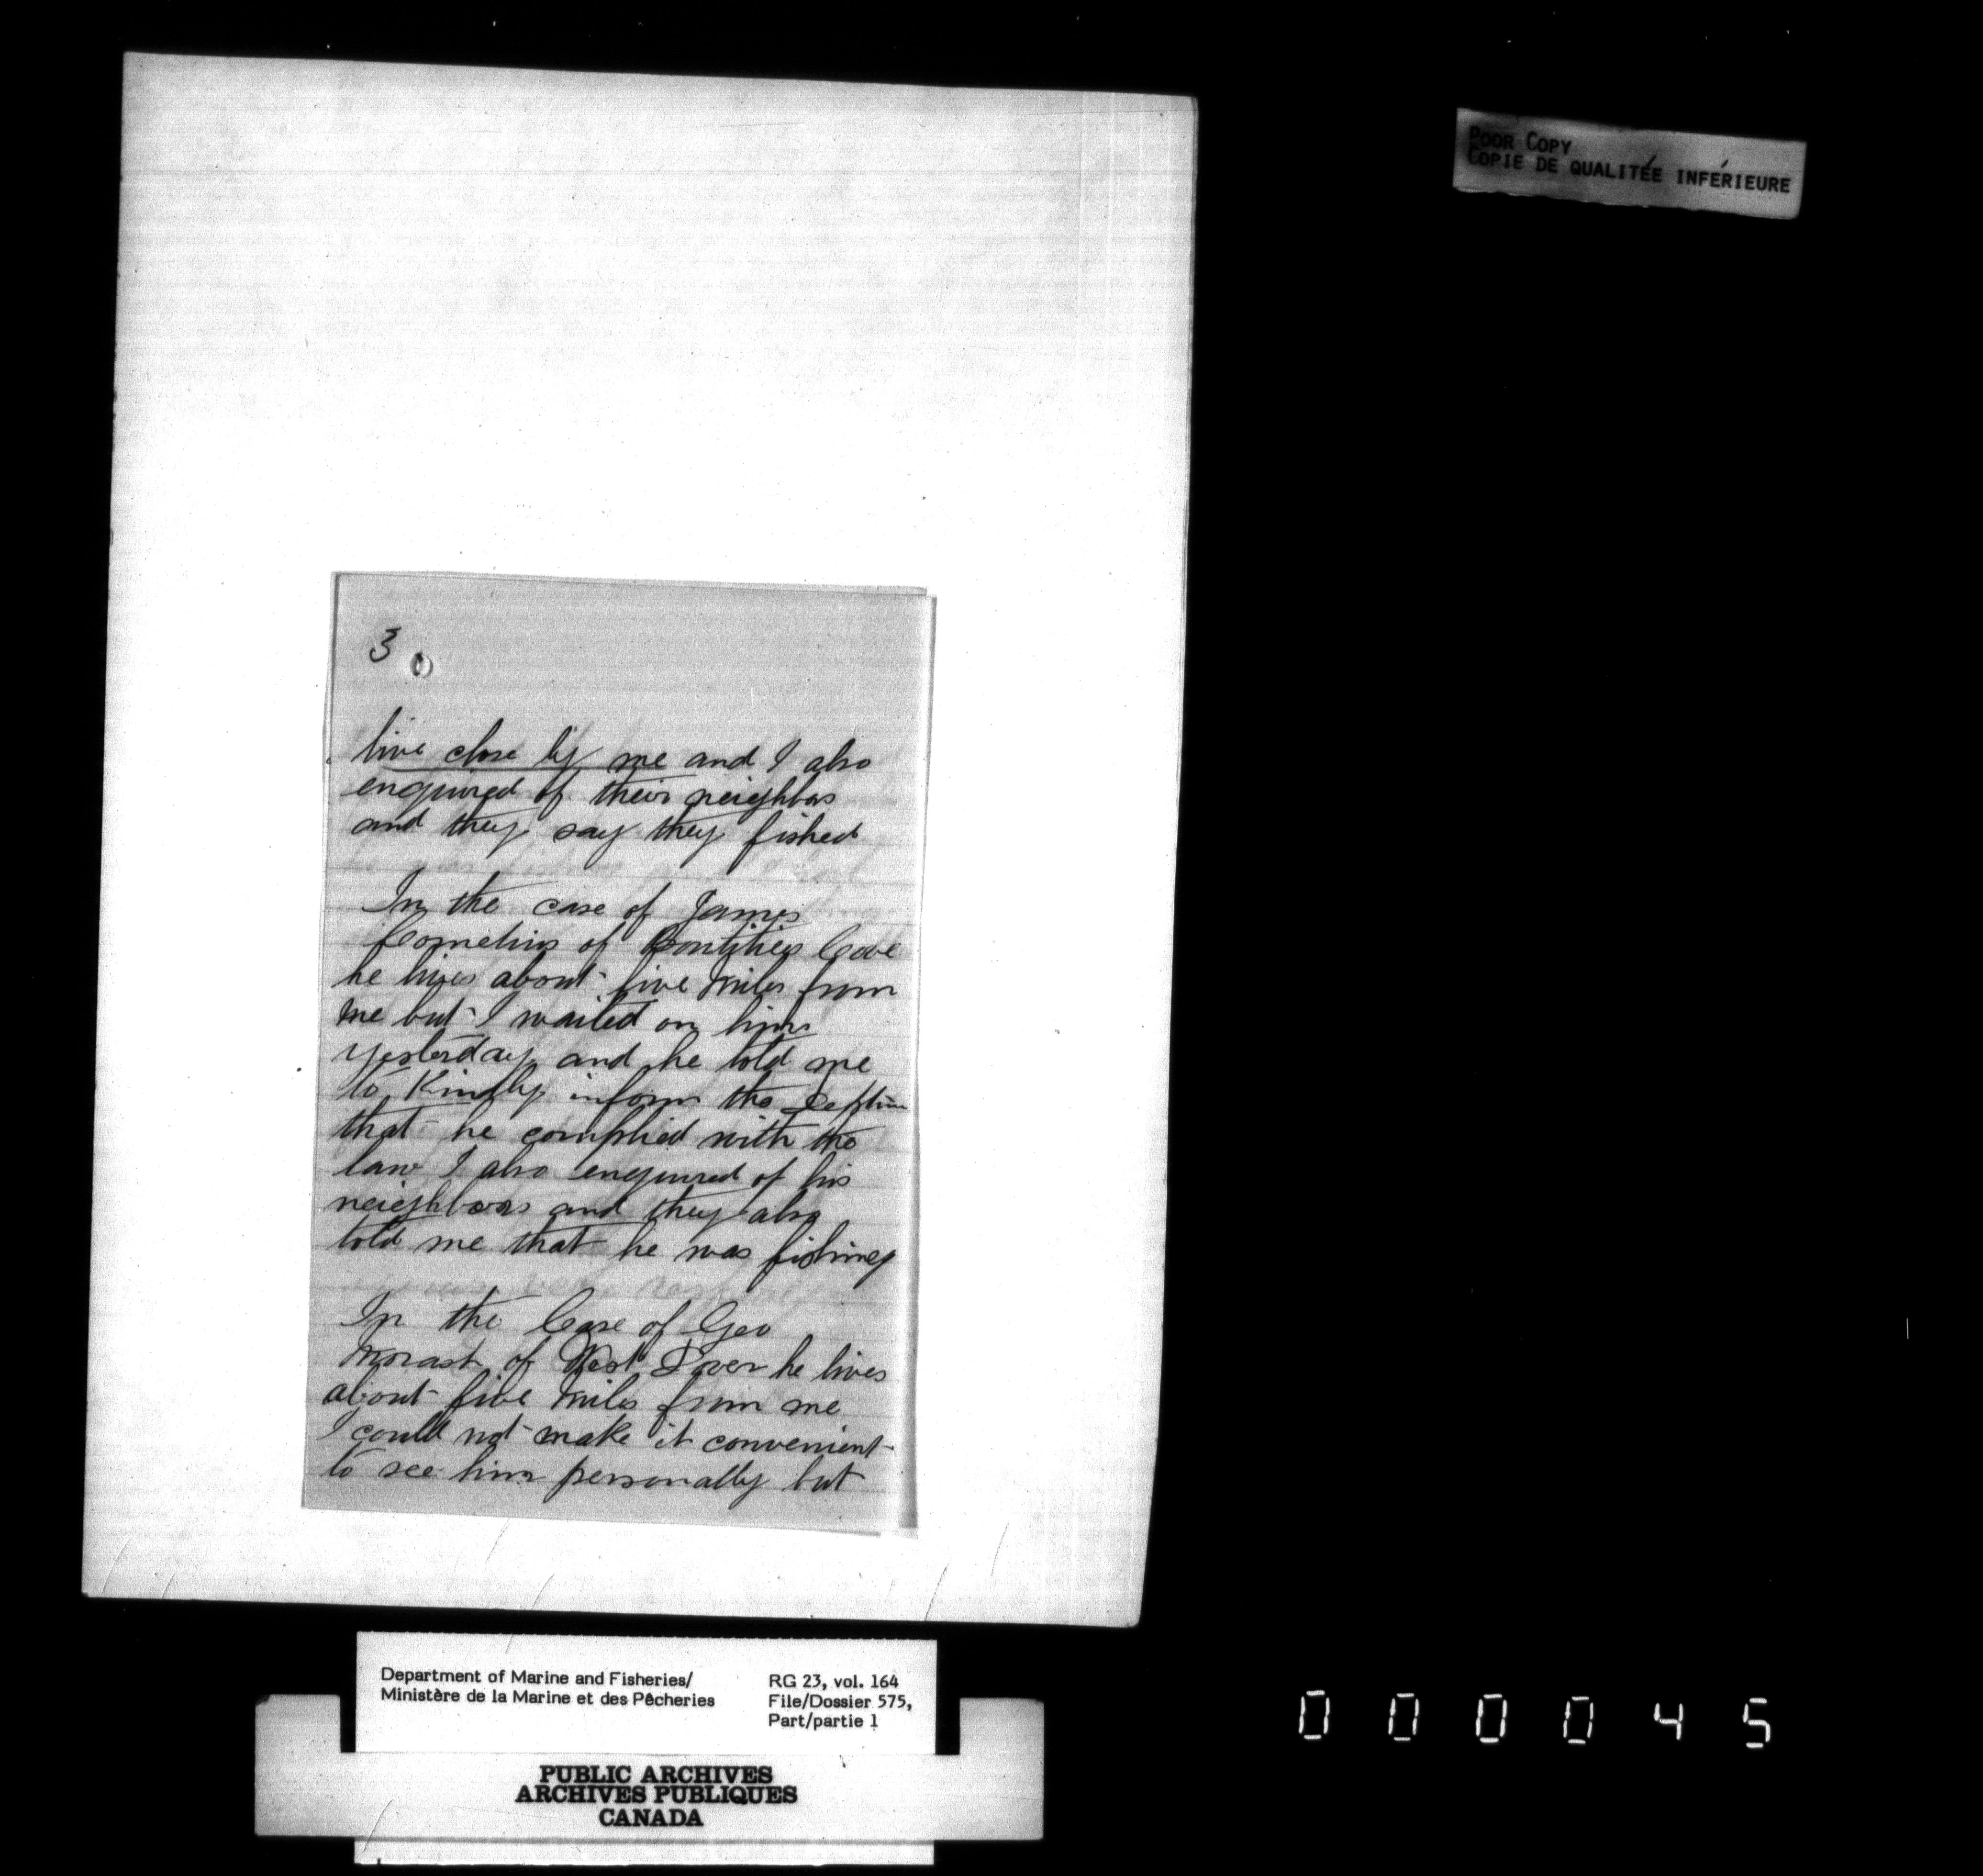 POOR COPY
COPIE DE QUALITÉE INFÉRIEURE
3
live close by me and I also
enquired of their neighbors
and they say they fished
In the case of James
Cornelius of Cove
he lives about five miles from
me but I waited on him
yesterday and he told me
to Kindly inform the
that he complied with the
law I also enquired of his
neighbours and they also
told me that he was fishing
In the Case of Geo
Morash of West Dover he lives
about five miles from me
I could not make it convenient
to see him personally but
Department of Marine and Fisheries/
Ministère de la Marine et des Pêcheries
RG 23, vol. 164
File/Dossier 575,
Part/partie 1
PUBLIC ARCHIVES
ARCHIVES PUBLIQUES
CANADA
000045